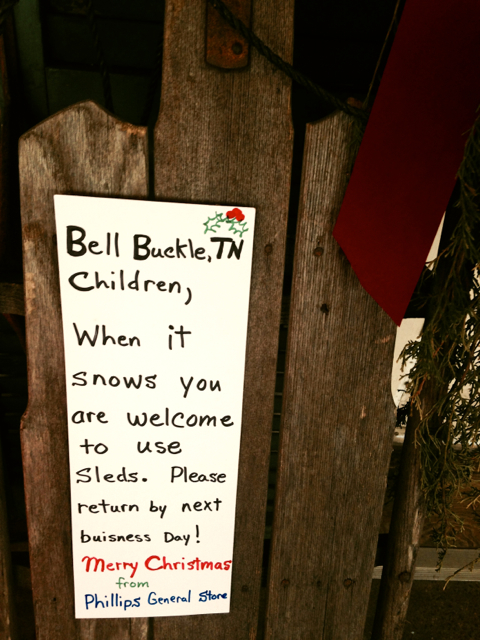 Bell Buckle, TN
Children,
When it
snows you
are welcome
to use
Sleds. Please
return by next
buisness Day!
Merry Christmas
from
Phillips General Store